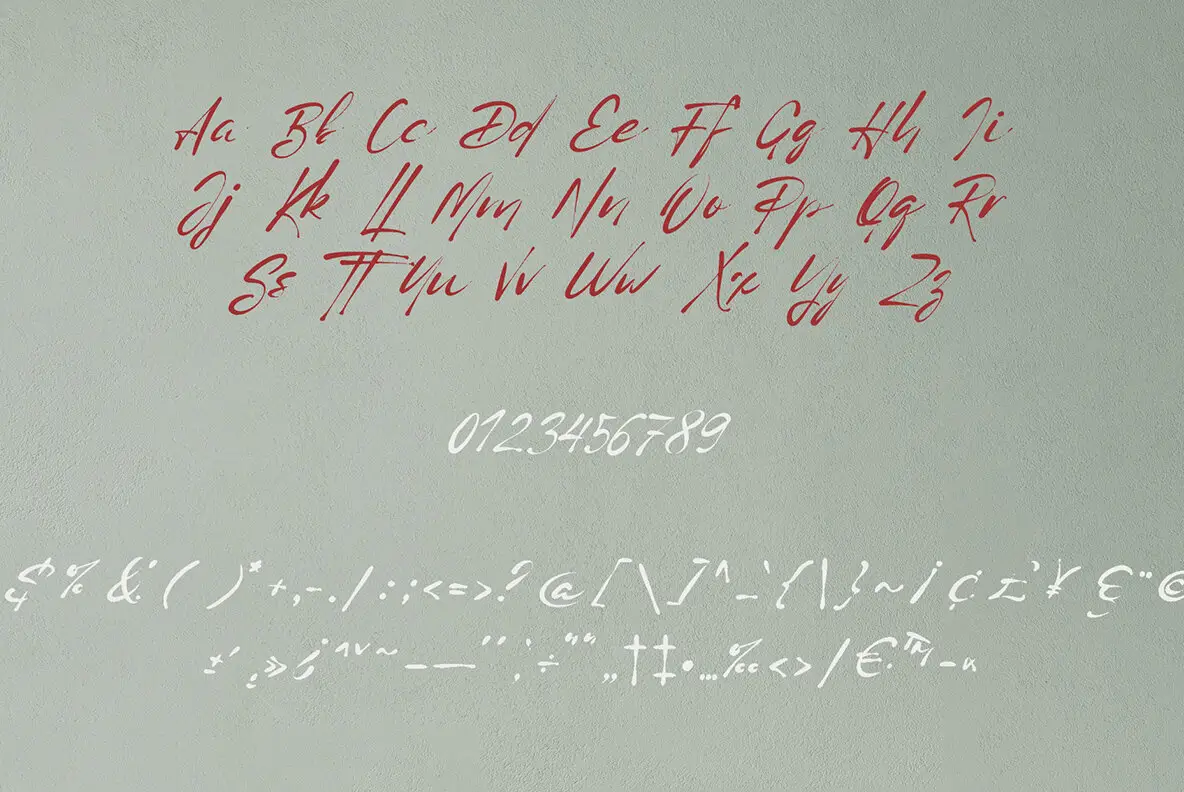 Aa Bb Cc Dd Ee Ff Gg Hh Ii
Jj Kk Ll Mm Nn Oo Pp Qq Rr
Ss Tt Uu Vv Ww Xx Yy Zz
0123456789
$ % & ( ) * + , - . / : ; < = > ? @ [ \ ] ^ _ ` { | } ~ ¡ ¢ £ ¥ ¨ ©
± ´ ¸ » ¿ ˆ ˇ ˜ – — ‘ ’ ‚ ÷ “ ” „ † ‡ • … ‰ ‹ › ⁄ € ™ −